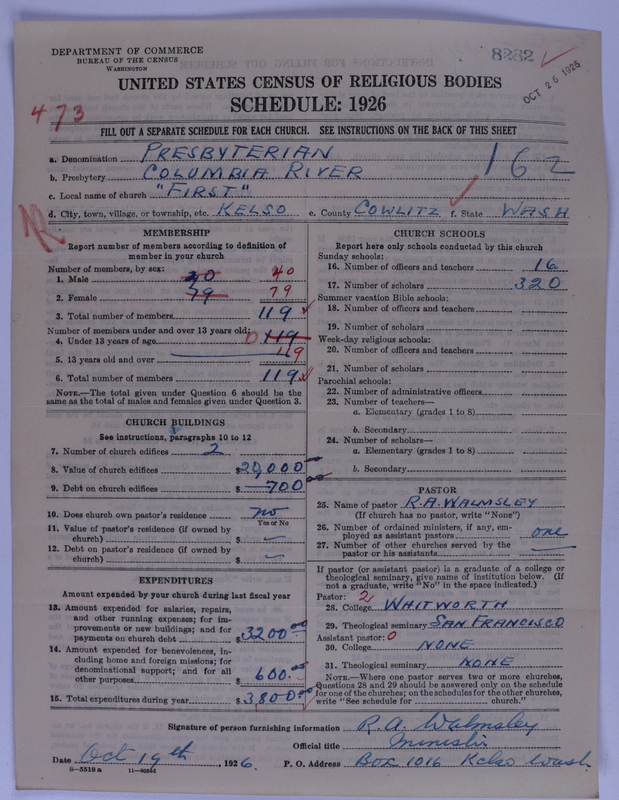 DEPARTMENT OF COMMERCE
BUREAU OF THE CENSUS
WASHINGTON
8232
OCT 26 1926
UNITED STATES CENSUS OF RELIGIOUS BODIES
SCHEDULE: 1926
473
FILL OUT A SEPARATE SCHEDULE FOR EACH CHURCH. SEE INSTRUCTIONS ON THE BACK OF THIS SHEET
a. Denomination PRESBYTERIAN
162
b. Presbytery COLUMBIA RIVER
c. Local name of church "FIRST"
d. City, town, village, or township, etc. KELSO e. County COWLITZ f. State WASH
NR
MEMBERSHIP
Report number of members according to definition of member in your church
Number of members, by sex:
1. Male 40 40
2. Female 79 79
3. Total number of members 119
Number of members under and over 13 years old:
4. Under 13 years of age 0 119
5. 13 years old and over 119
6. Total number of members 119
NOTE.—The total given under Question 6 should be the same as the total of males and females given under Question 3.
CHURCH BUILDINGS
See instructions, paragraphs 10 to 12
7. Number of church edifices 2
8. Value of church edifices $20,000
9. Debt on church edifices $700
10. Does church own pastor's residence no
Yes or No
11. Value of pastor's residence (if owned by church) $
12. Debt on pastor's residence (if owned by church) $
EXPENDITURES
Amount expended by your church during last fiscal year
13. Amount expended for salaries, repairs, and other running expenses; for improvements or new buildings; and for payments on church debt $3200.00
14. Amount expended for benevolences, including home and foreign missions; for denominational support; and for all other purposes $600.
15. Total expenditures during year $3,800.00
CHURCH SCHOOLS
Report here only schools conducted by this church
Sunday schools:
16. Number of officers and teachers 16
17. Number of scholars 320
Summer vacation Bible schools:
18. Number of officers and teachers
19. Number of scholars
Week-day religious schools:
20. Number of officers and teachers
21. Number of scholars
Parochial schools:
22. Number of administrative officers
23. Number of teachers—
a. Elementary (grades 1 to 8)
b. Secondary
24. Number of scholars—
a. Elementary (grades 1 to 8)
b. Secondary
PASTOR
25. Name of pastor R.A. WALMSLEY
(If church has no pastor, write "None")
26. Number of ordained ministers, if any, employed as assistant pastors one
27. Number of other churches served by the pastor or his assistants
If pastor (or assistant pastor) is a graduate of a college or theological seminary, give name of institution below. (If not a graduate, write "No" in the space indicated.)
Pastor: 2
28. College WHITWORTH
29. Theological seminary SAN FRANCISCO
Assistant pastor: 0
30. College NONE
31. Theological seminary NONE
NOTE.—Where one pastor serves two or more churches, Questions 28 and 29 should be answered only on the schedule for one of the churches; on the schedules for the other churches, write "See schedule for church."
Signature of person furnishing information R. A. Walmsley
Official title Minister
Date Oct 19th, 1926. P. O. Address Box 1016 Kelso Wash
8—5518a 11—9056d